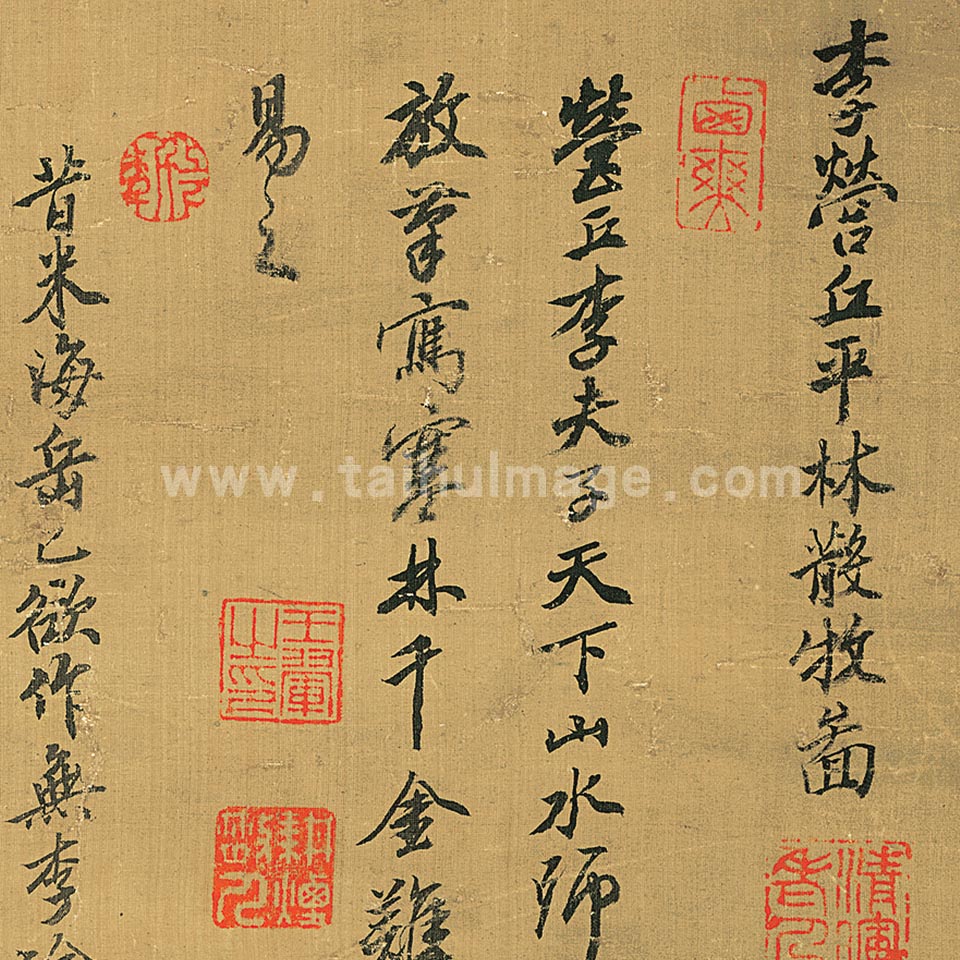 李營丘平林散牧啚
營丘李夫子天下山水師
放筆寫寒林千金難
易之
昔米海岳已欲作無李論
王翬之印
www.taihuImage.com